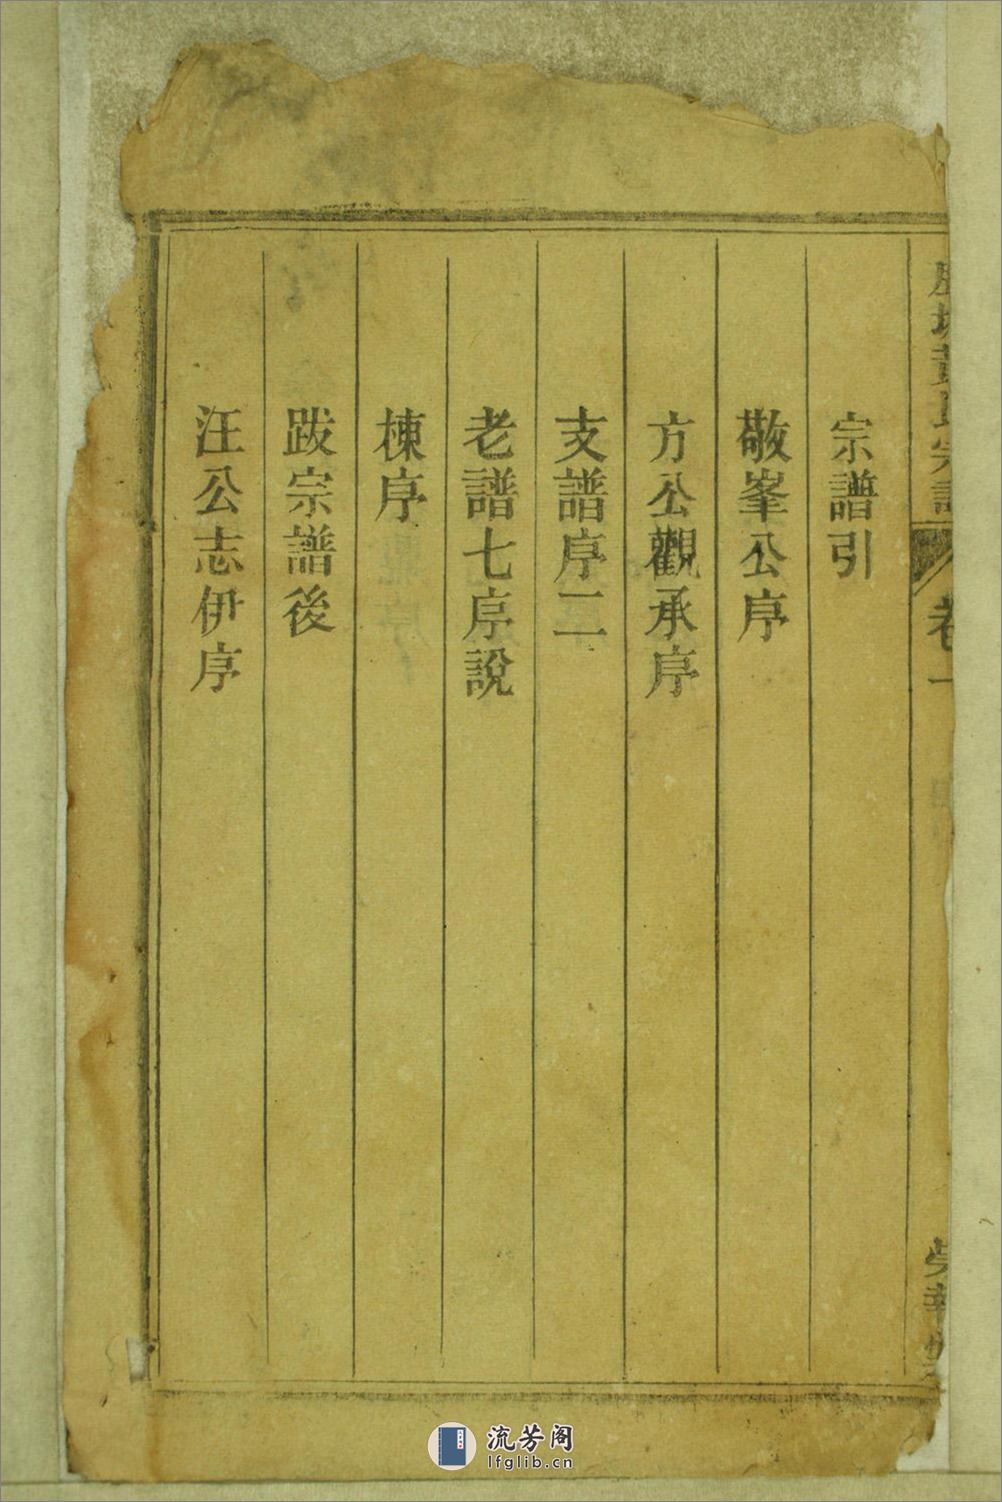 宗譜引
敬峯公序
方公觀承序
支譜序二
老譜七序說
棟序
跋宗譜後
汪公志伊序
卷一
流芳阁
lfglib.cn